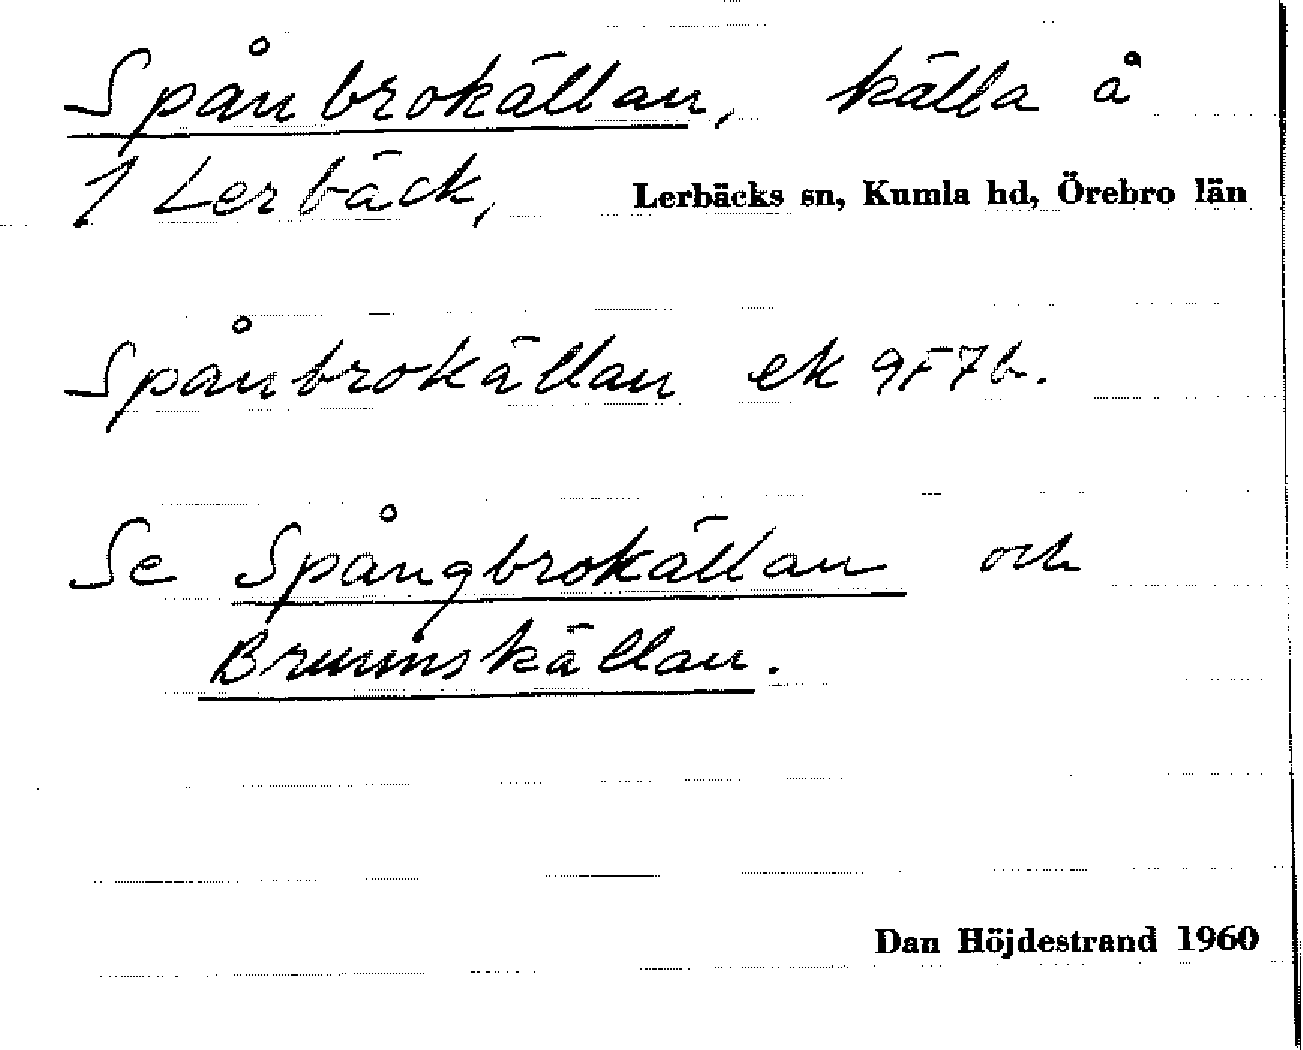 Spånbrokällan, källa å
1 Lerbäck, Lerbäcks sn, Kumla hd, Örebro län
Spånbrokällan ek 9F7b.
Se Spångbrokällan och
Brunnskällan.
Dan Höjdestrand 1960